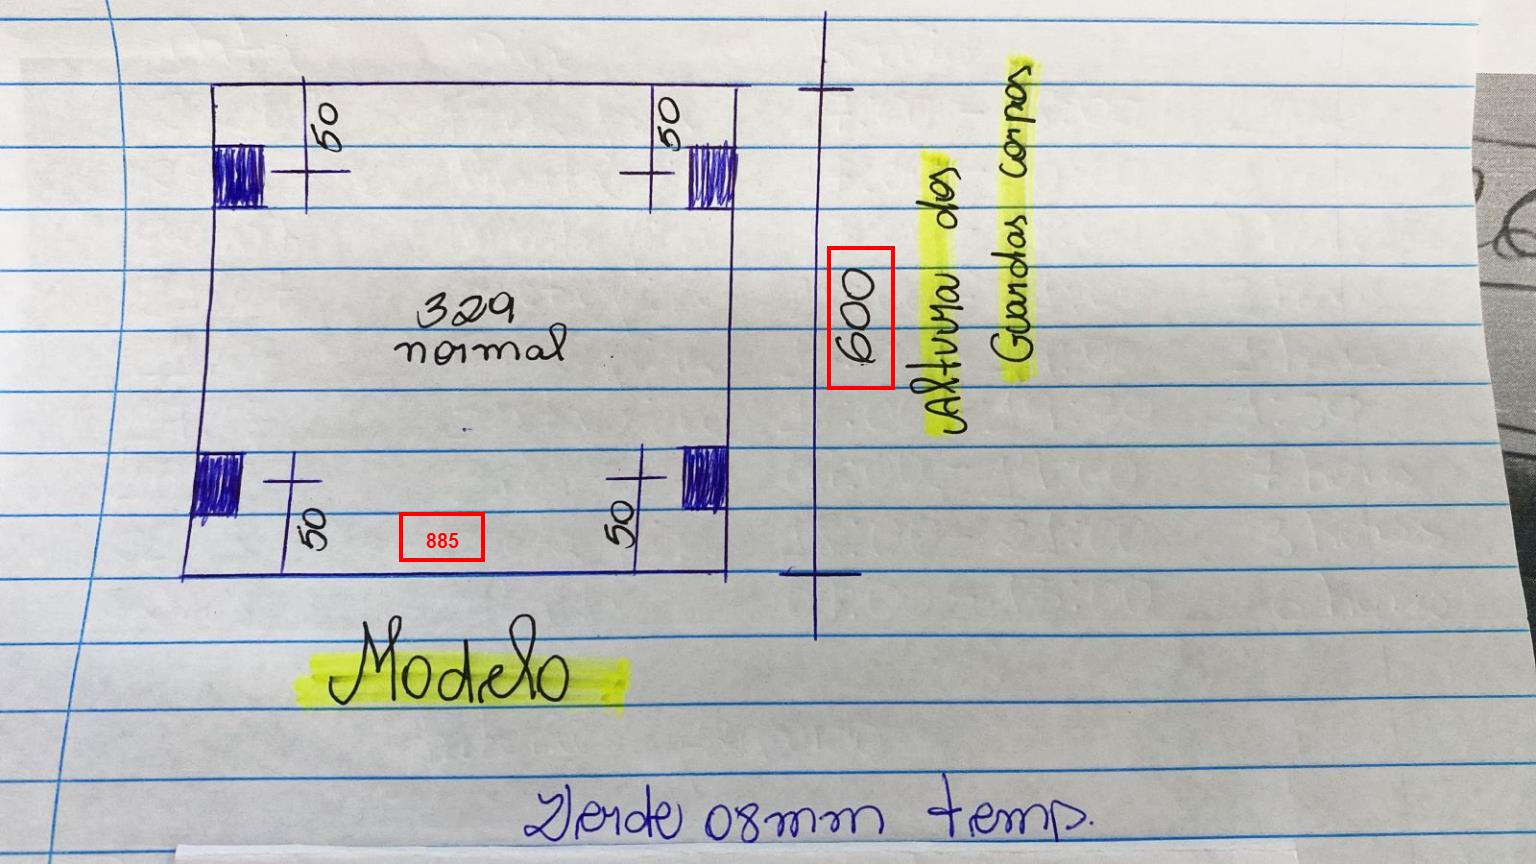 50
50
329
normal
50
50
885
600
Altura dos
Guardas corpos
Modelo
Verde 08mm temp.